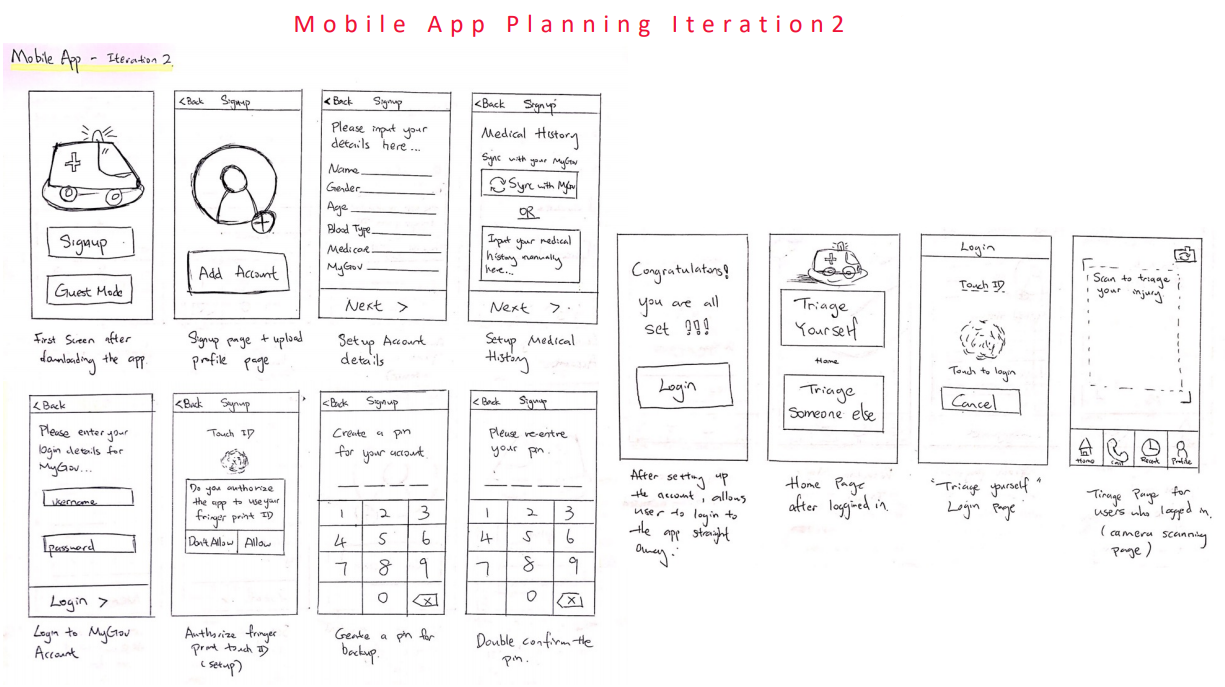 Mobile App Planning Iteration2
Mobile App - Iteration 2
Signup
Guest Mode
First Screen after
downloading the app.
<Back Signup
Add Account
Signup page + upload
profile page
<Back Signup
Please input your
details here...
Name
Gender
Age
Blood Type
Medicare
MyGov
Next >
Setup Account
details
<Back Signup
Medical History
Sync with your MyGov
Sync with MyGov
OR
Input your medical
history manually
here...
Next >
Setup Medical
History
<Back
Please enter your
login details for
MyGov...
username
password
Login >
Login to MyGov
Account
<Back Signup
Touch ID
Do you authorize
the app to use your
fringer print ID
Don't Allow Allow
Authorize fringer
print touch ID
(setup)
<Back Signup
Create a pin
for your account
1 2 3
4 5 6
7 8 9
0 X
Create a pin for
backup.
<Back Signup
Please re-entre
your pin.
1 2 3
4 5 6
7 8 9
0 X
Double confirm the
pin.
Congratulations!
you are all
set !!!
Login
After setting up
the account, allows
user to login to
the app straight
away.
Triage
Yourself
Home
Triage
Someone else
Home Page
after loggined in.
Login
Touch ID
Touch to login
Cancel
"Triage yourself"
Login page
Scan to triage
your injury
Home Call Recent Profile
Tirage Page for
users who logged in.
(camera scanning
page)